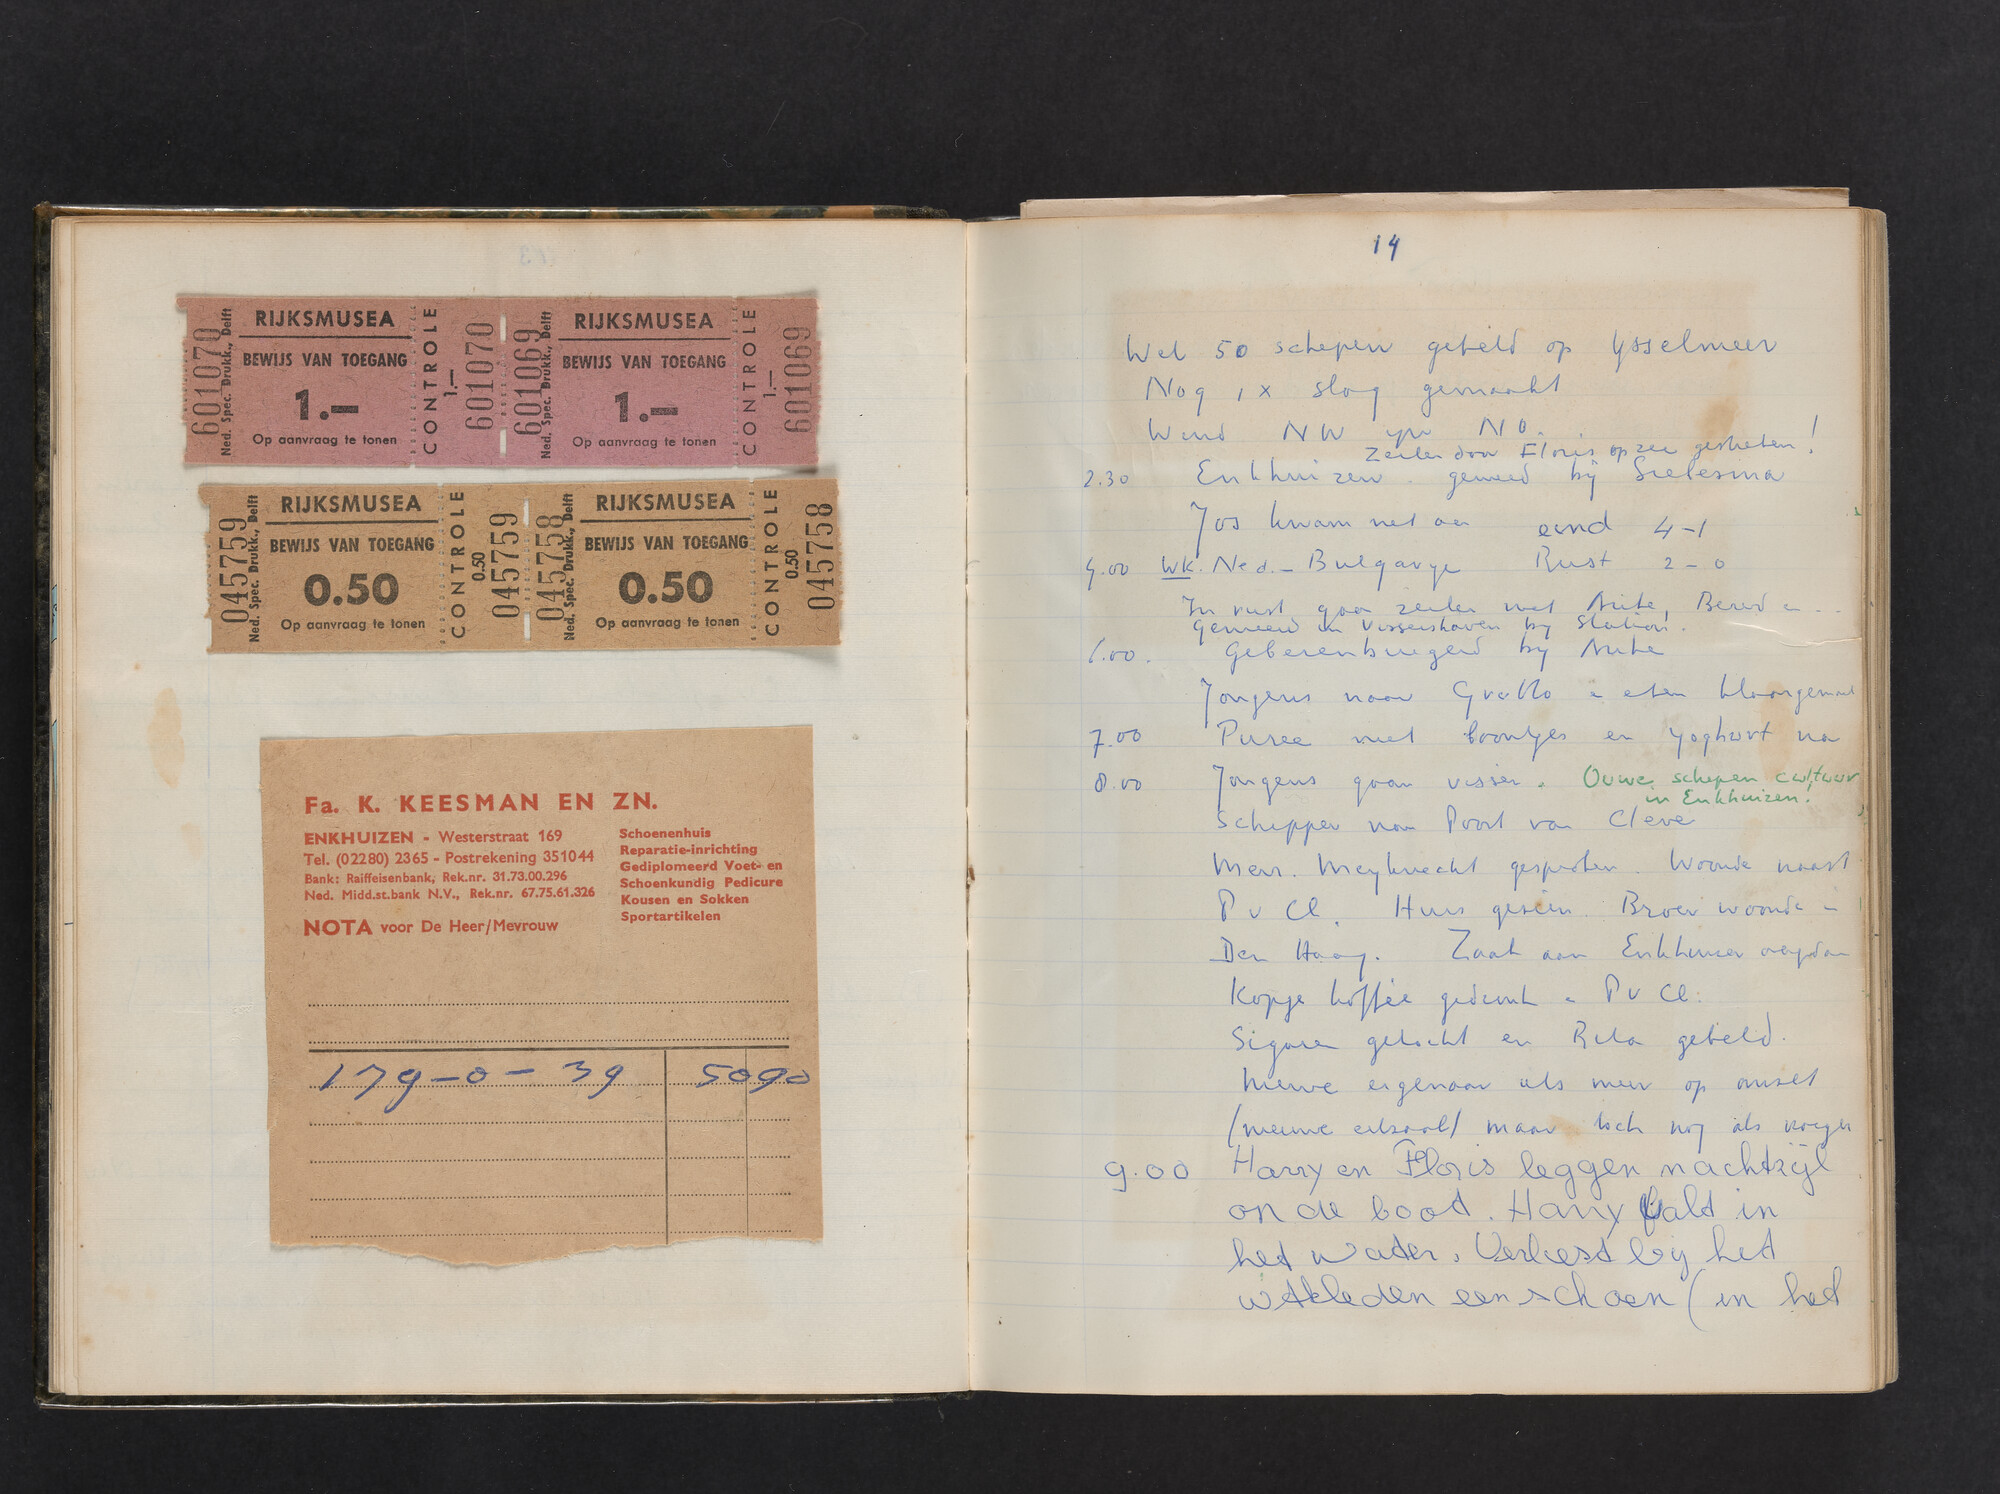 RIJKSMUSEA
BEWIJS VAN TOEGANG
1.—
Op aanvraag te tonen
601070
Ned. Spec. Drukk., Delft
CONTROLE
1.—
601070
RIJKSMUSEA
BEWIJS VAN TOEGANG
1.—
Op aanvraag te tonen
601069
Ned. Spec. Drukk., Delft
CONTROLE
1.—
601069
RIJKSMUSEA
BEWIJS VAN TOEGANG
0.50
Op aanvraag te tonen
045759
Ned. Spec. Drukk., Delft
CONTROLE
0.50
045759
RIJKSMUSEA
BEWIJS VAN TOEGANG
0.50
Op aanvraag te tonen
045758
Ned. Spec. Drukk., Delft
CONTROLE
0.50
045758
Fa. K. KEESMAN EN ZN.
ENKHUIZEN - Westerstraat 169
Tel. (02280) 2365 - Postrekening 351044
Bank: Raiffeisenbank, Rek.nr. 31.73.00.296
Ned. Midd.st.bank N.V., Rek.nr. 67.75.61.326
NOTA voor De Heer/Mevrouw
Schoenenhuis
Reparatie-inrichting
Gediplomeerd Voet- en
Schoenkundig Pedicure
Kousen en Sokken
Sportartikelen
179-0-39 5090
14
Wel 50 schepen geteld op Ysselmeer
Nog 1x slag gemaakt
Wind NW ipv NO.
Zeiler door Floris op zee
2.30 Enkhuizen. gemeerd bij
Jos kwam net aan eind 4-1
4.00 WK. Ned. - Bulgarye Rust 2-0
In rust gaan zeilen met
Gemeerd in Vissershaven by Station.
by
Jongens naar en eten klaargemaakt
7.00 Puree met boontjes en yoghurt na
8.00 Jongens gaan vissen. Ouwe schepen cultuur
in Enkhuizen!
Schipper van Poort van Cleve
gesproken. Woonde naast
P v Cl. Huis gezien. Broer woonde in
Den Haag. Zaak aan
Kopje koffie gedronken in P v Cl.
Sigaren gekocht en Rita gebeld.
Nieuwe eigenaar is meer op omzet
(nieuwe eetzaal) maar toch nog als vroeger
9.00 Harry en Floris leggen nachtzijl
on de boot. Harry valt in
het water. Verliest bij het
uitkleden een schoen (in het